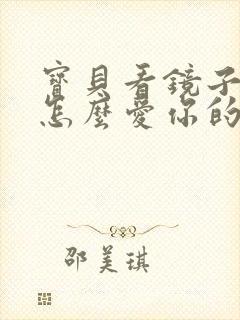 寶貝看鏡子
怎麼愛你的
邵美琪